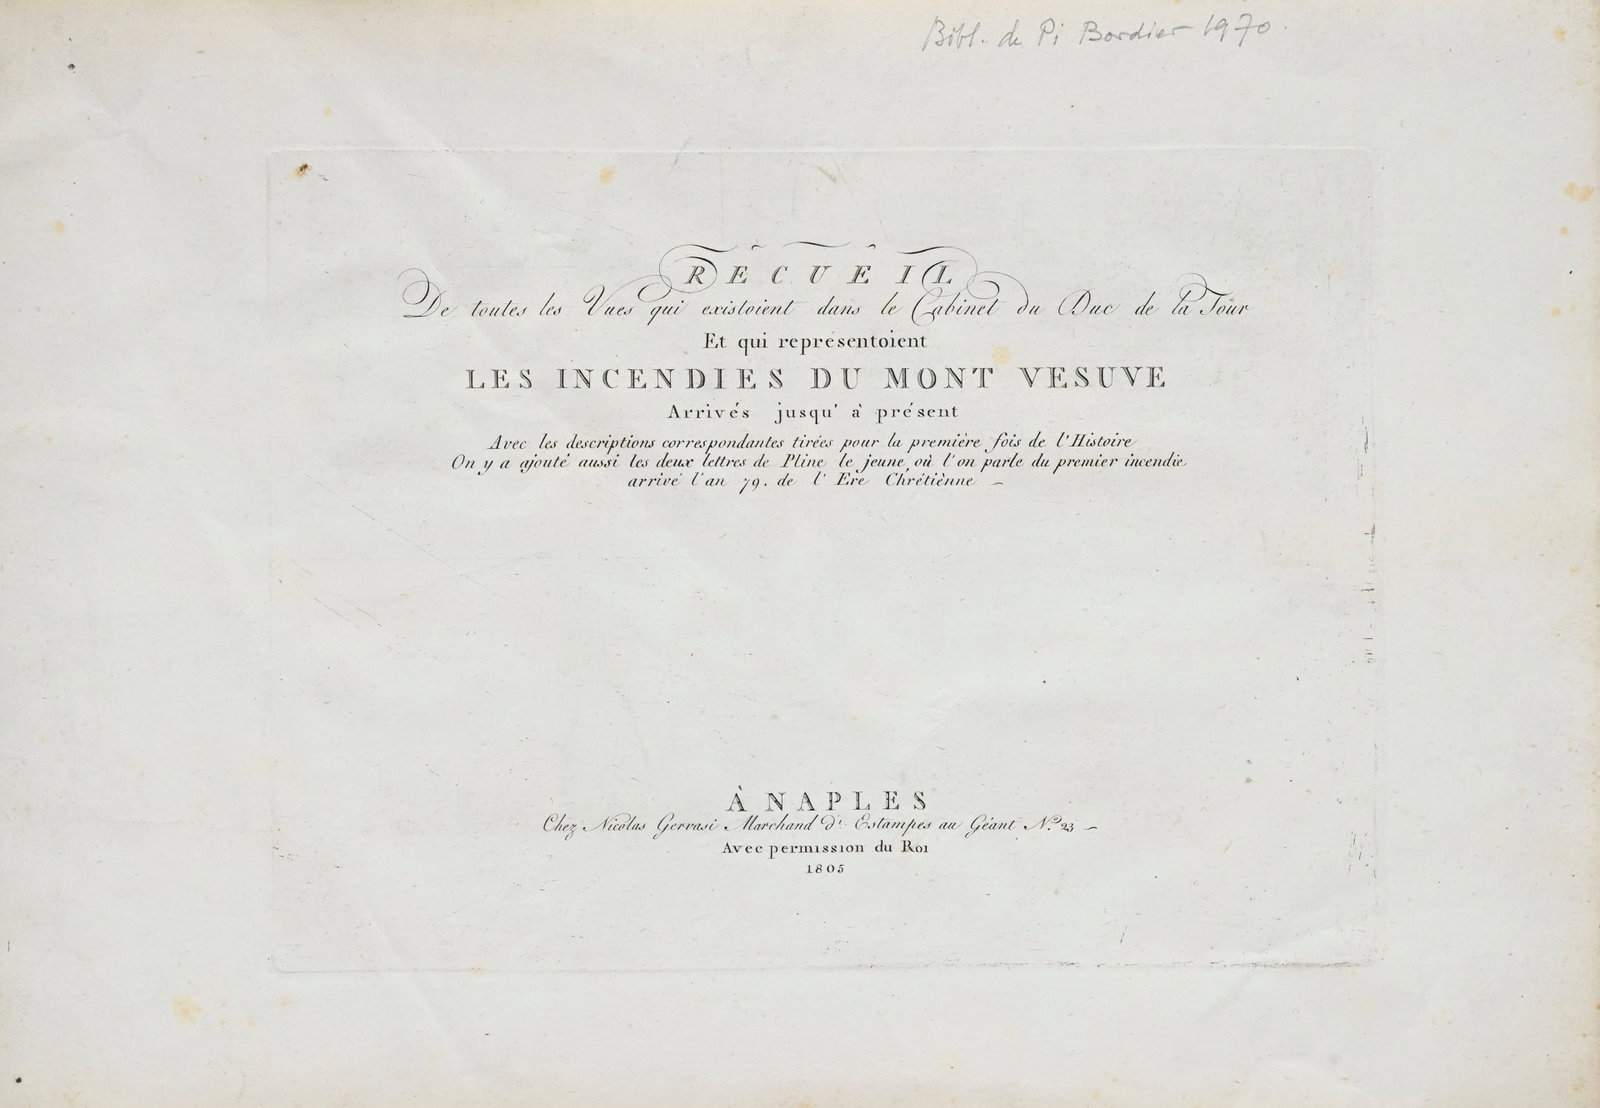 Bibl. de Pi Bordier 1970.
RECUEIL
De toutes les Vues qui existoient dans le Cabinet du Duc de la Tour
Et qui représentoient
LES INCENDIES DU MONT VESUVE
Arrivés jusqu' à présent
Avec les descriptions correspondantes tirées pour la première fois de l'Histoire
On y a ajouté aussi les deux lettres de Pline le jeune, où l'on parle du premier incendie
arrivé l'an 79. de l' Ere Chrétiènne
À NAPLES
Chez Nicolas Gervasi Marchand d' Estampes au Géant N.º 23
Avec permission du Roi
1805